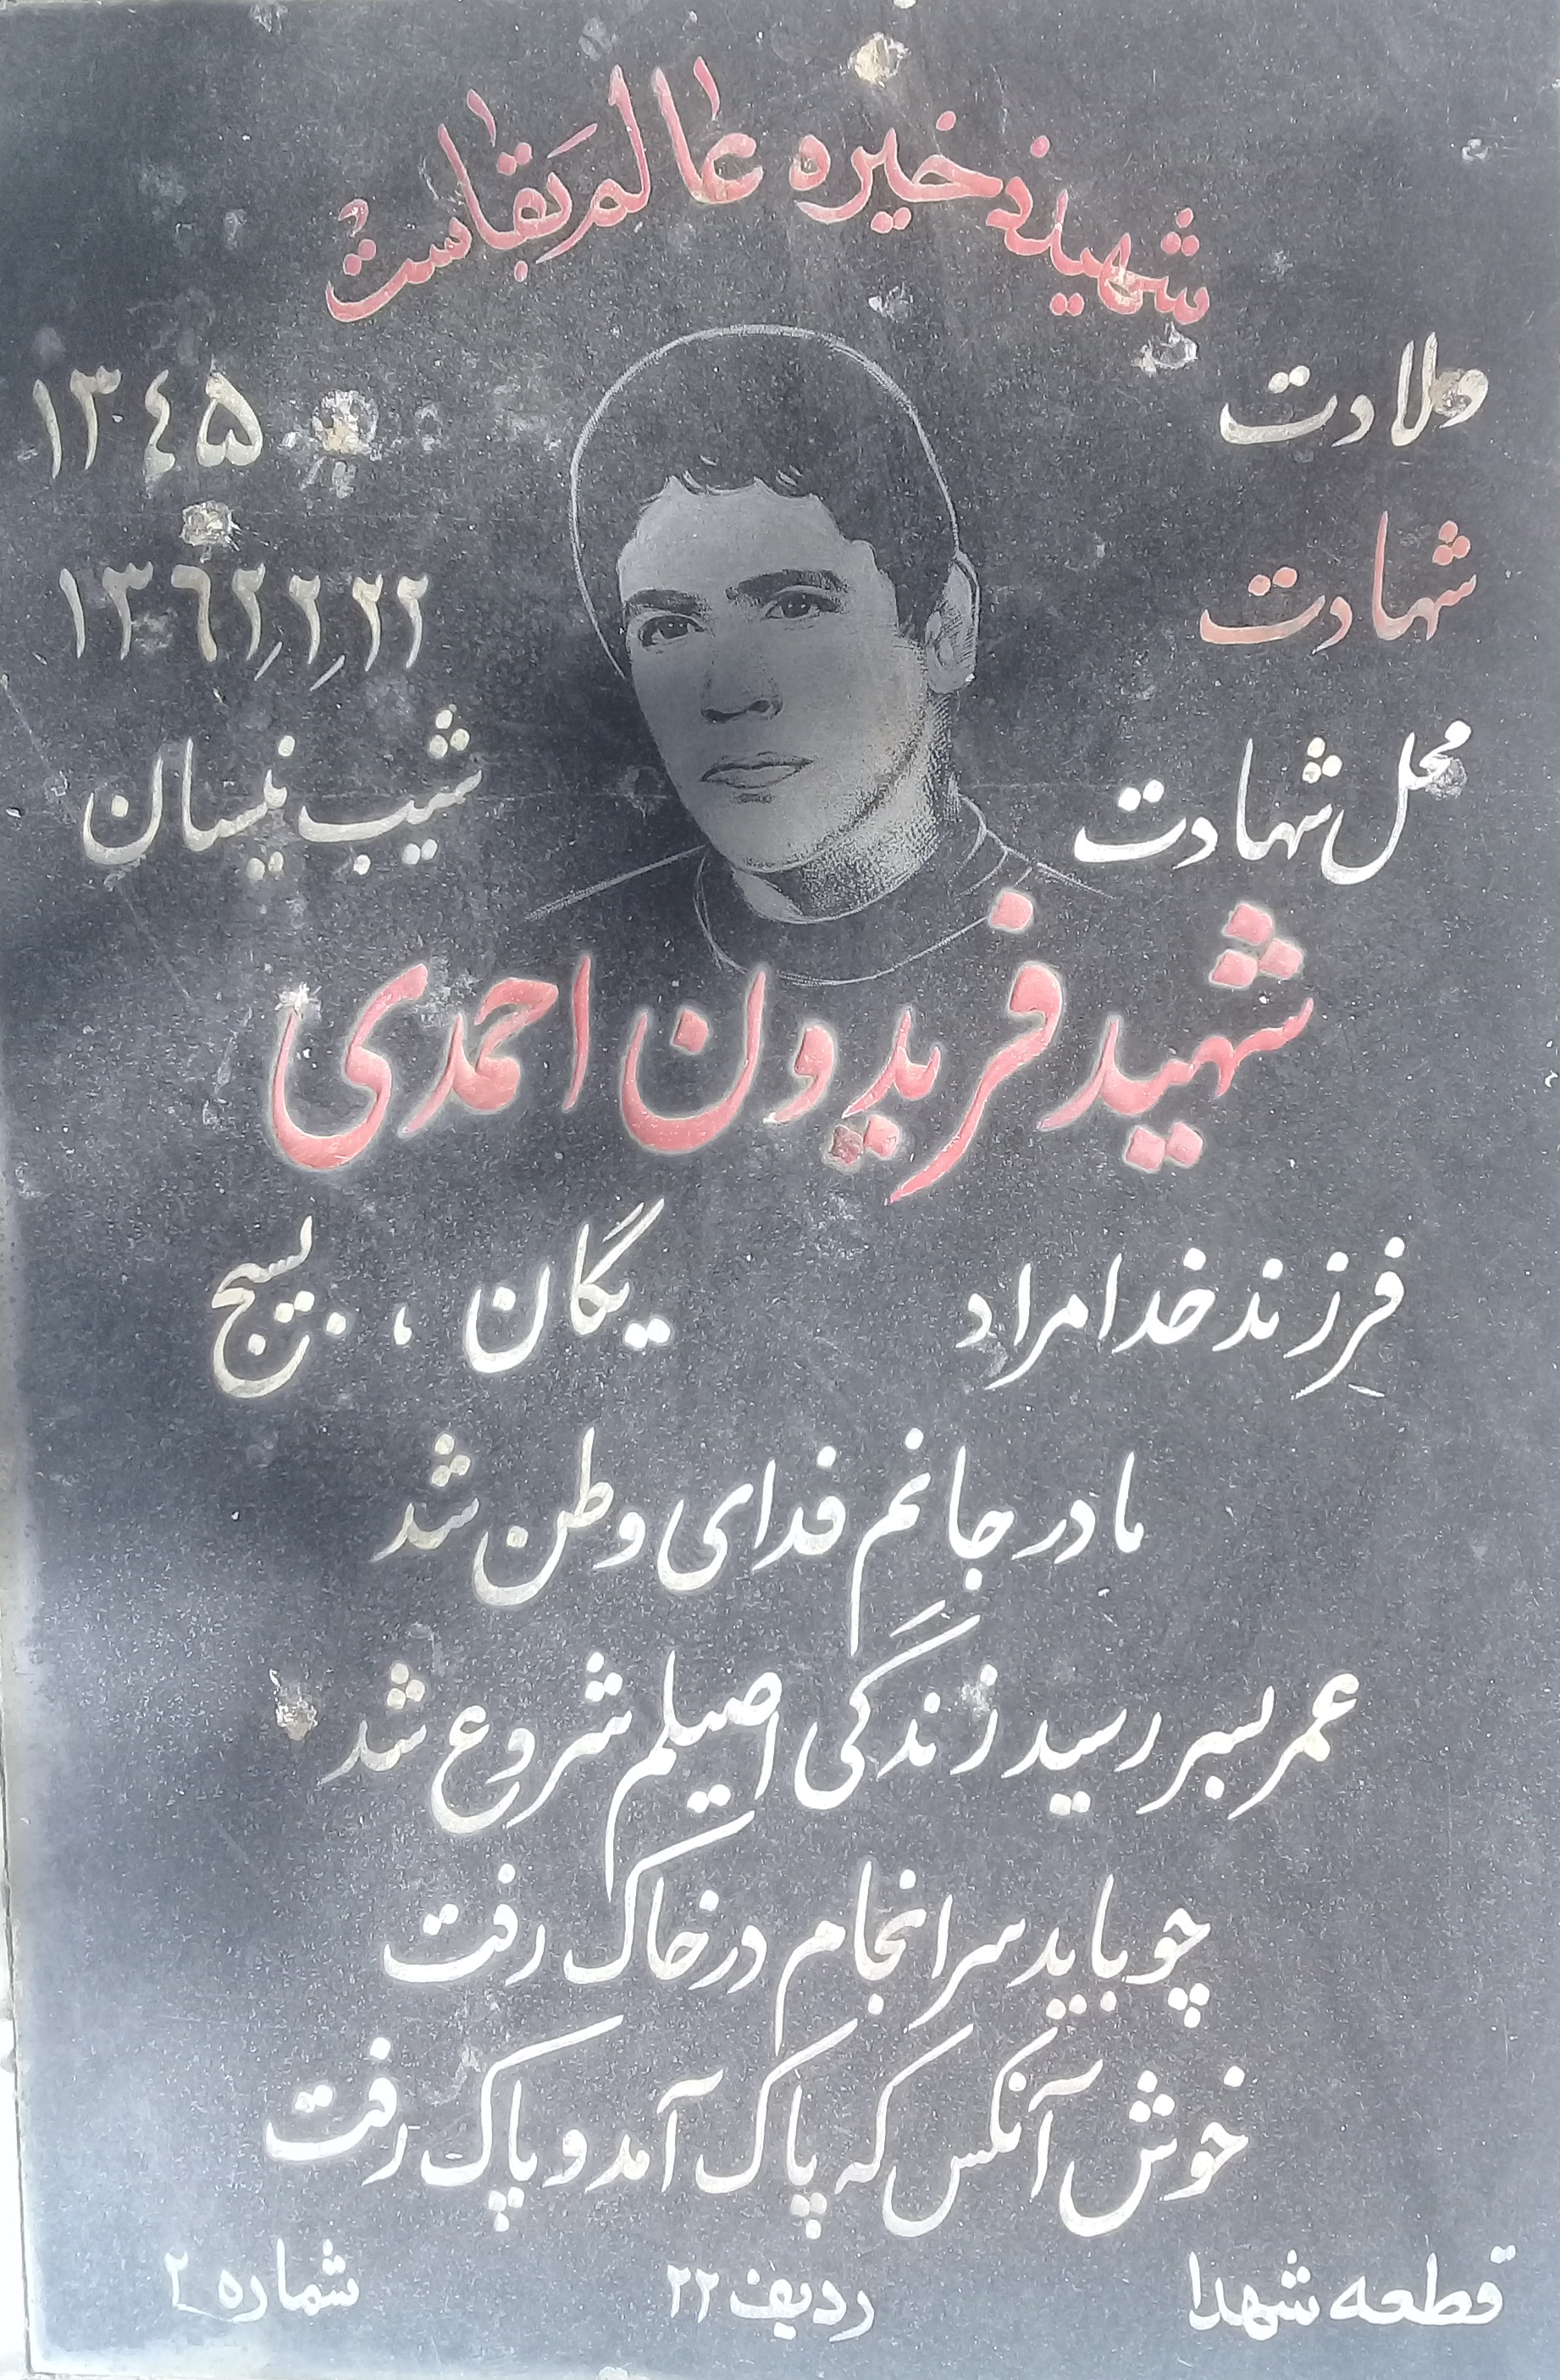 شهید ذخیره عالم بقاست
ولادت ۱۳۴۵
شهادت ۱۳۶۲٫۲٫۲۲
محل شهادت شیب نیسان
شهید فریدون احمدی
فرزند خدامراد یگان ، بسیج
مادر جانم فدای وطن شد
عمر بسر رسید زندگی اصیلم شروع شد
چو باید سرانجام در خاک رفت
خوش آنکس که پاک آمد و پاک رفت
قطعه شهدا ردیف ۲۲ شماره ۲